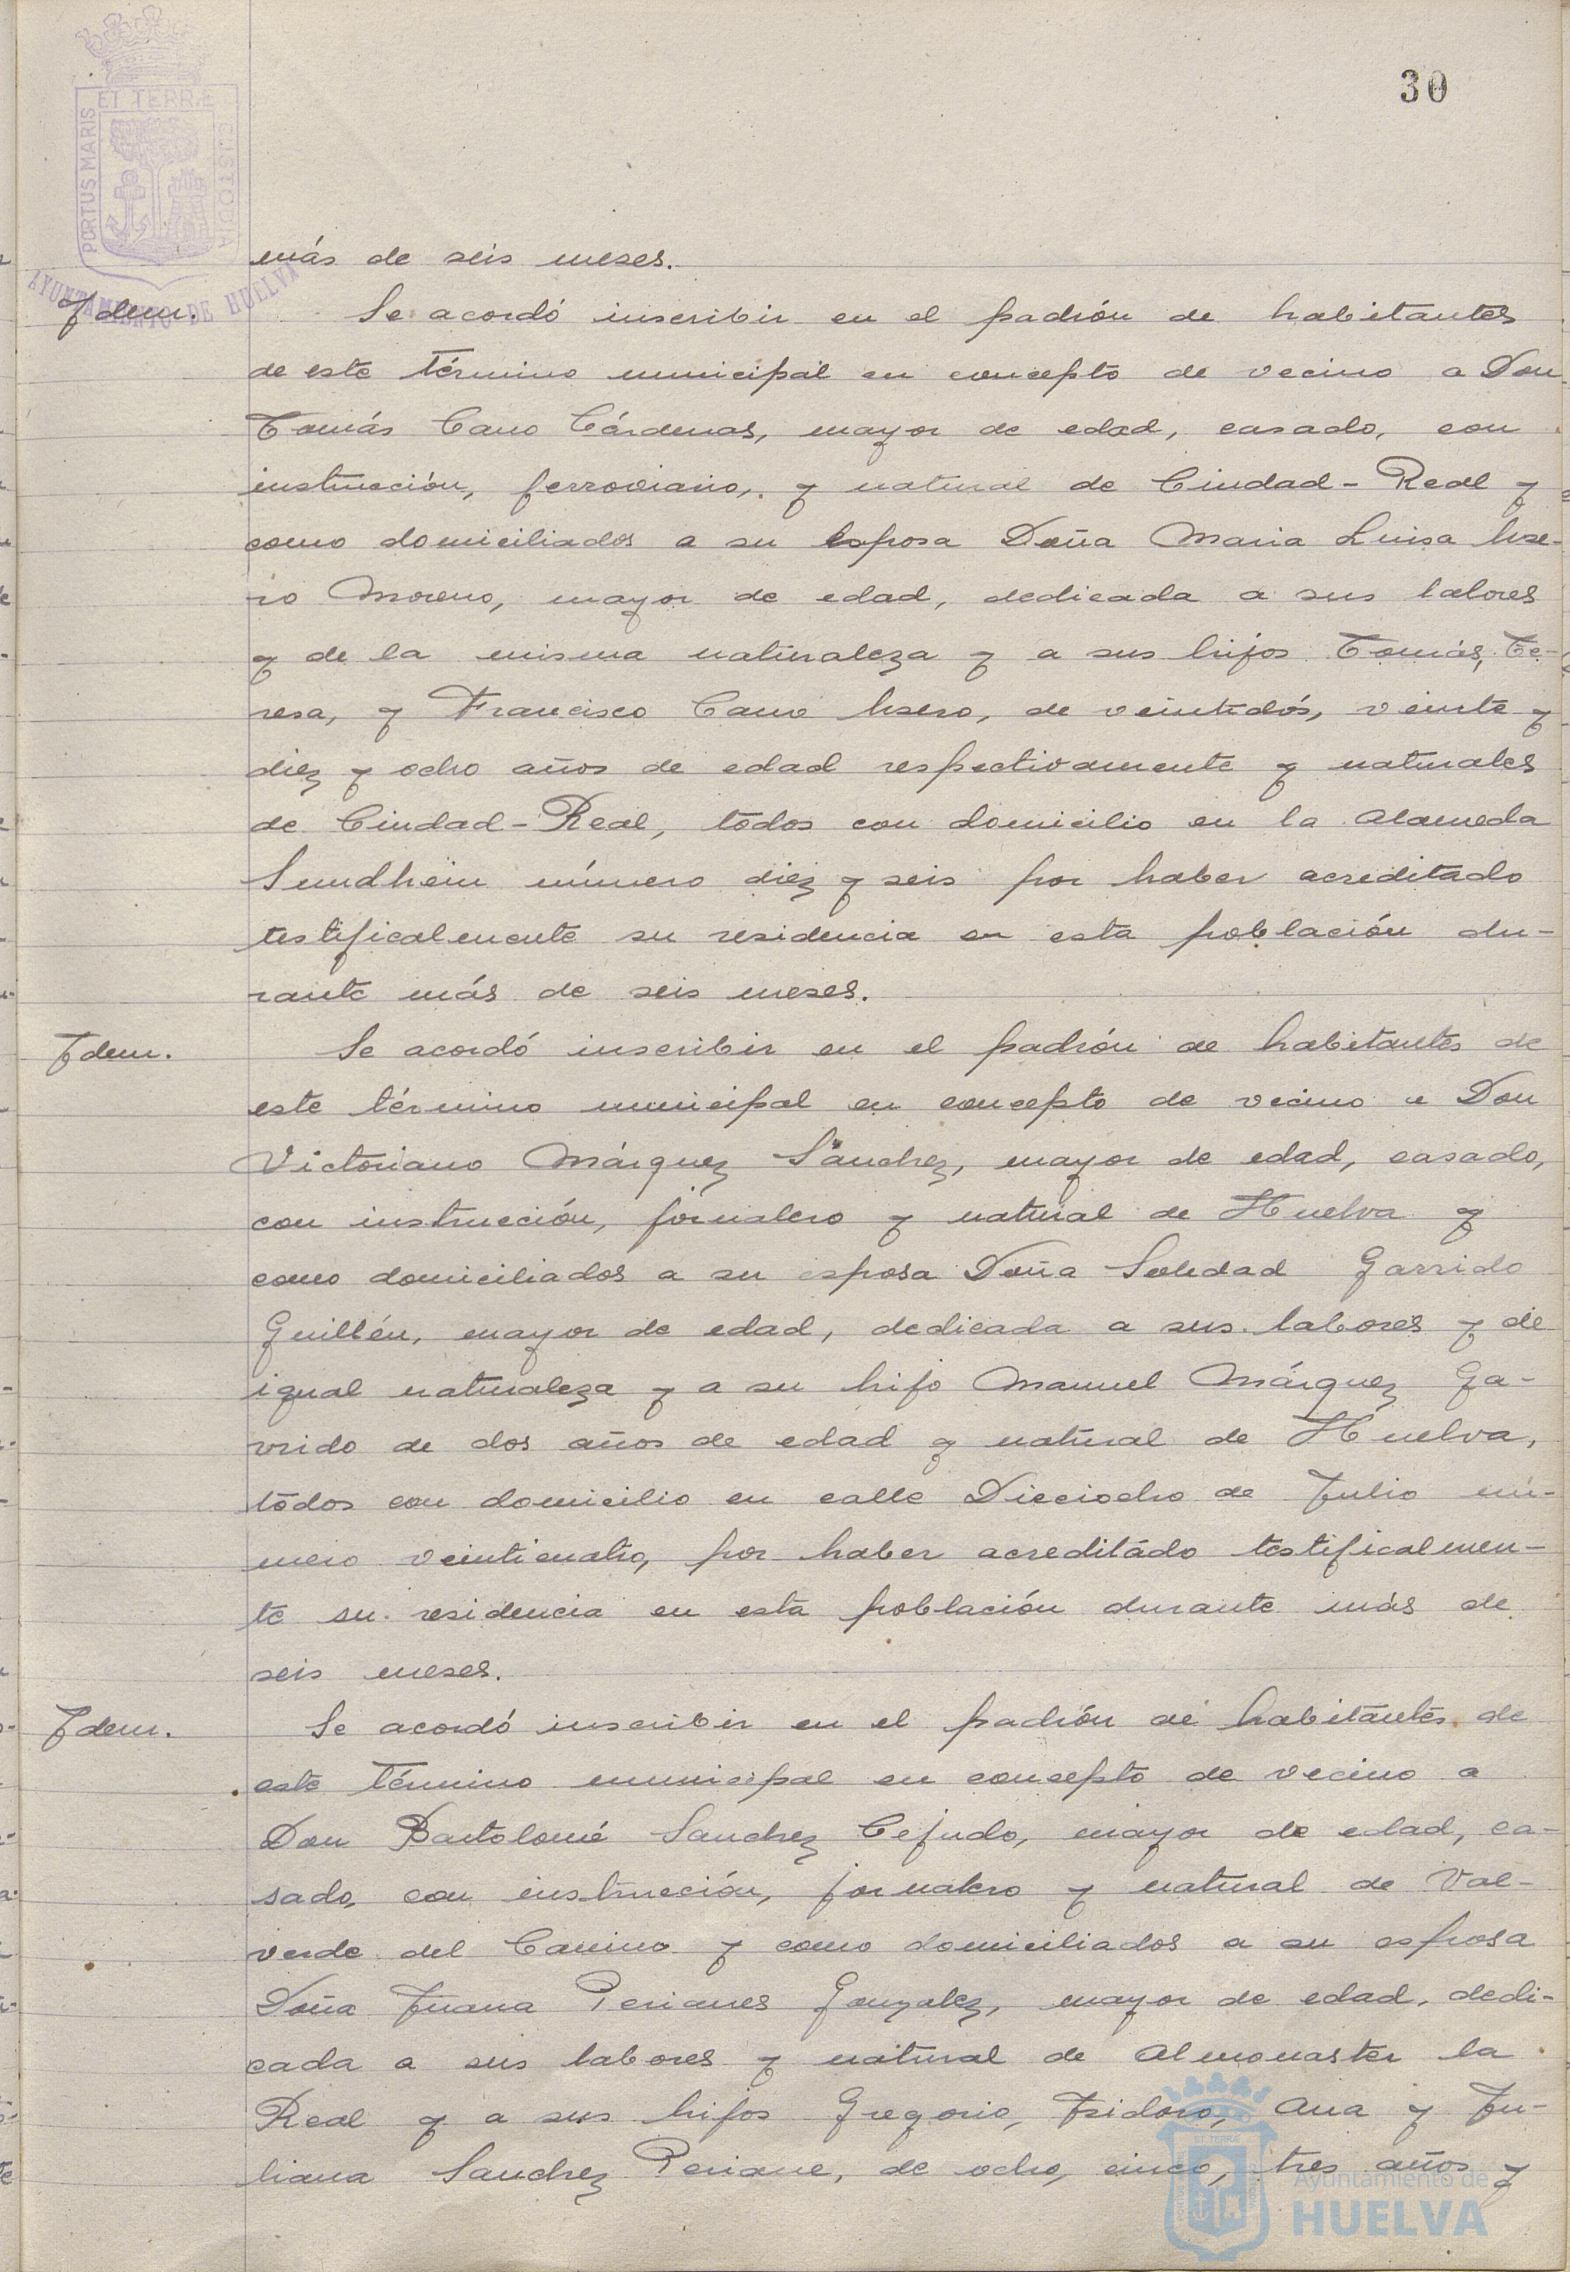 30
PORTUS MARIS ET TERRÆ CUSTODIA
AYUNTAMIENTO DE HUELVA
más de seis meses.
Idem. Se acordó inscribir en el padrón de habitantes
de este término municipal en concepto de vecino a Don
Tomás Cano Cárdenas, mayor de edad, casado, con
instrucción, ferroviario, y natural de Ciudad-Real y
como domiciliados a su esposa Doña Maria Luisa
ro Moreno, mayor de edad, dedicada a sus labores
y de la misma naturaleza y a sus hijos Tomás, Te-
resa, y Francisco Cano de veintidós, veinte y
diez y ocho años de edad respectivamente y naturales
de Ciudad-Real, todos con domicilio en la Alameda
Sundhein número diez y seis por haber acreditado
testificalmente su residencia en esta población du-
rante más de seis meses.
Idem. Se acordó inscribir en el padrón de habitantes de
este término municipal en concepto de vecino a Don
Victoriano Márquez Sánchez, mayor de edad, casado,
con instrucción, jornalero y natural de Huelva y
como domiciliados a su esposa Doña Soledad Garrido
Guillén, mayor de edad, dedicada a sus labores y de
igual naturaleza y a su hijo Manuel Márquez Ga-
rrido de dos años de edad y natural de Huelva,
todos con domicilio en calle Dieciocho de Julio nú-
mero veinticuatro, por haber acreditado testificalmen-
te su residencia en esta población durante más de
seis meses.
Idem. Se acordó inscribir en el padrón de habitantes de
este término municipal en concepto de vecino a
Don Bartolomé Sanchez Cejudo, mayor de edad, ca-
sado, con instrucción, jornalero y natural de Val-
verde del Camino y como domiciliados a su esposa
Doña Juana Perianes Gonzalez, mayor de edad, dedi-
cada a sus labores y natural de Almonaster la
Real y a sus hijos Gregorio, Isidoro, Ana y Ju-
liana Sanchez Periane, de ocho, cinco, tres años y
Ayuntamiento de
HUELVA